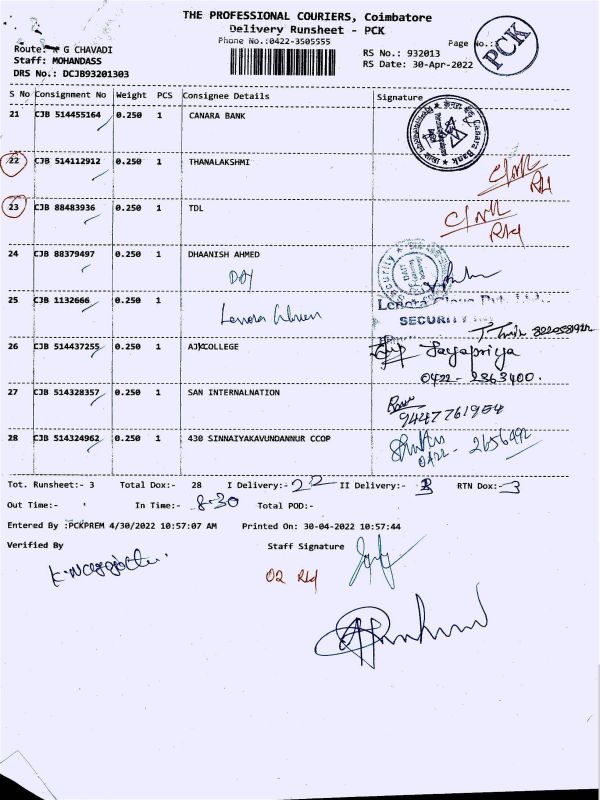 THE PROFESSIONAL COURIERS, Coimbatore
Delivery Runsheet - PCK
Phone No.:0422-3505555
Page No.:
PCK
Route: G CHAVADI
Staff: MOHANDASS
DRS No.: DCJB93201303
RS No.: 932013
RS Date: 30-Apr-2022
S No Consignment No Weight PCS Consignee Details Signature
21 CJB 514455164 0.250 1 CANARA BANK
Canara Bank
22 CJB 514112912 0.250 1 THANALAKSHMI
23 CJB 88483936 0.250 1 TDL
24 CJB 88379497 0.250 1 DHAANISH AHMED
Security
25 CJB 1132666 0.250 1
SECURITY
26 CJB 514437255 0.250 1 AJKCOLLEGE Jayapriya
0422-2363400.
27 CJB 514328357 0.250 1 SAN INTERNALNATION
9447761954
28 CJB 514324962 0.250 1 430 SINNAIYAKAVUNDANNUR CCOP
0422-2656492
Tot. Runsheet:- 3 Total Dox:- 28 I Delivery:- 22 II Delivery:- 3 RTN Dox:- 3
Out Time:- In Time:- 8-30 Total POD:-
Entered By :PCKPREM 4/30/2022 10:57:07 AM Printed On: 30-04-2022 10:57:44
Verified By Staff Signature